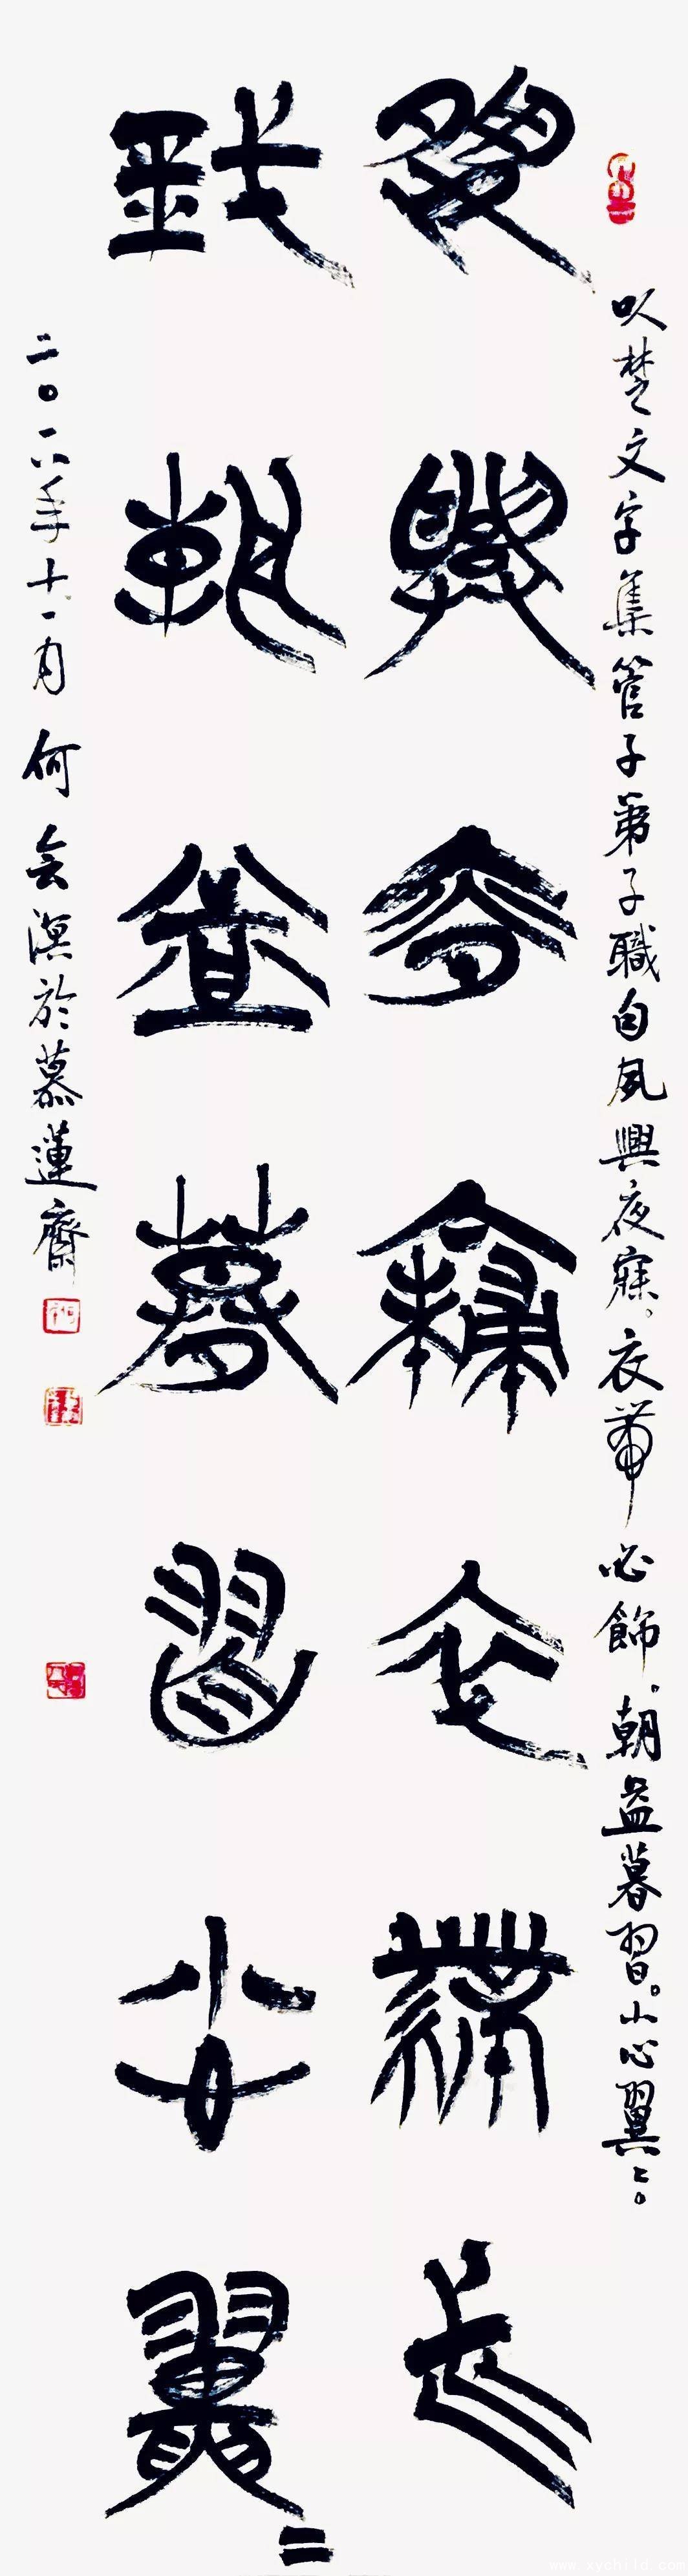 以楚文字集管子弟子職句夙興夜寐。衣帶必飾。朝益暮習。小心翼二。
夙興夜寐衣帶必
飾朝益暮習小心翼二
二〇一六年十一月何会溟於慕蓮齋